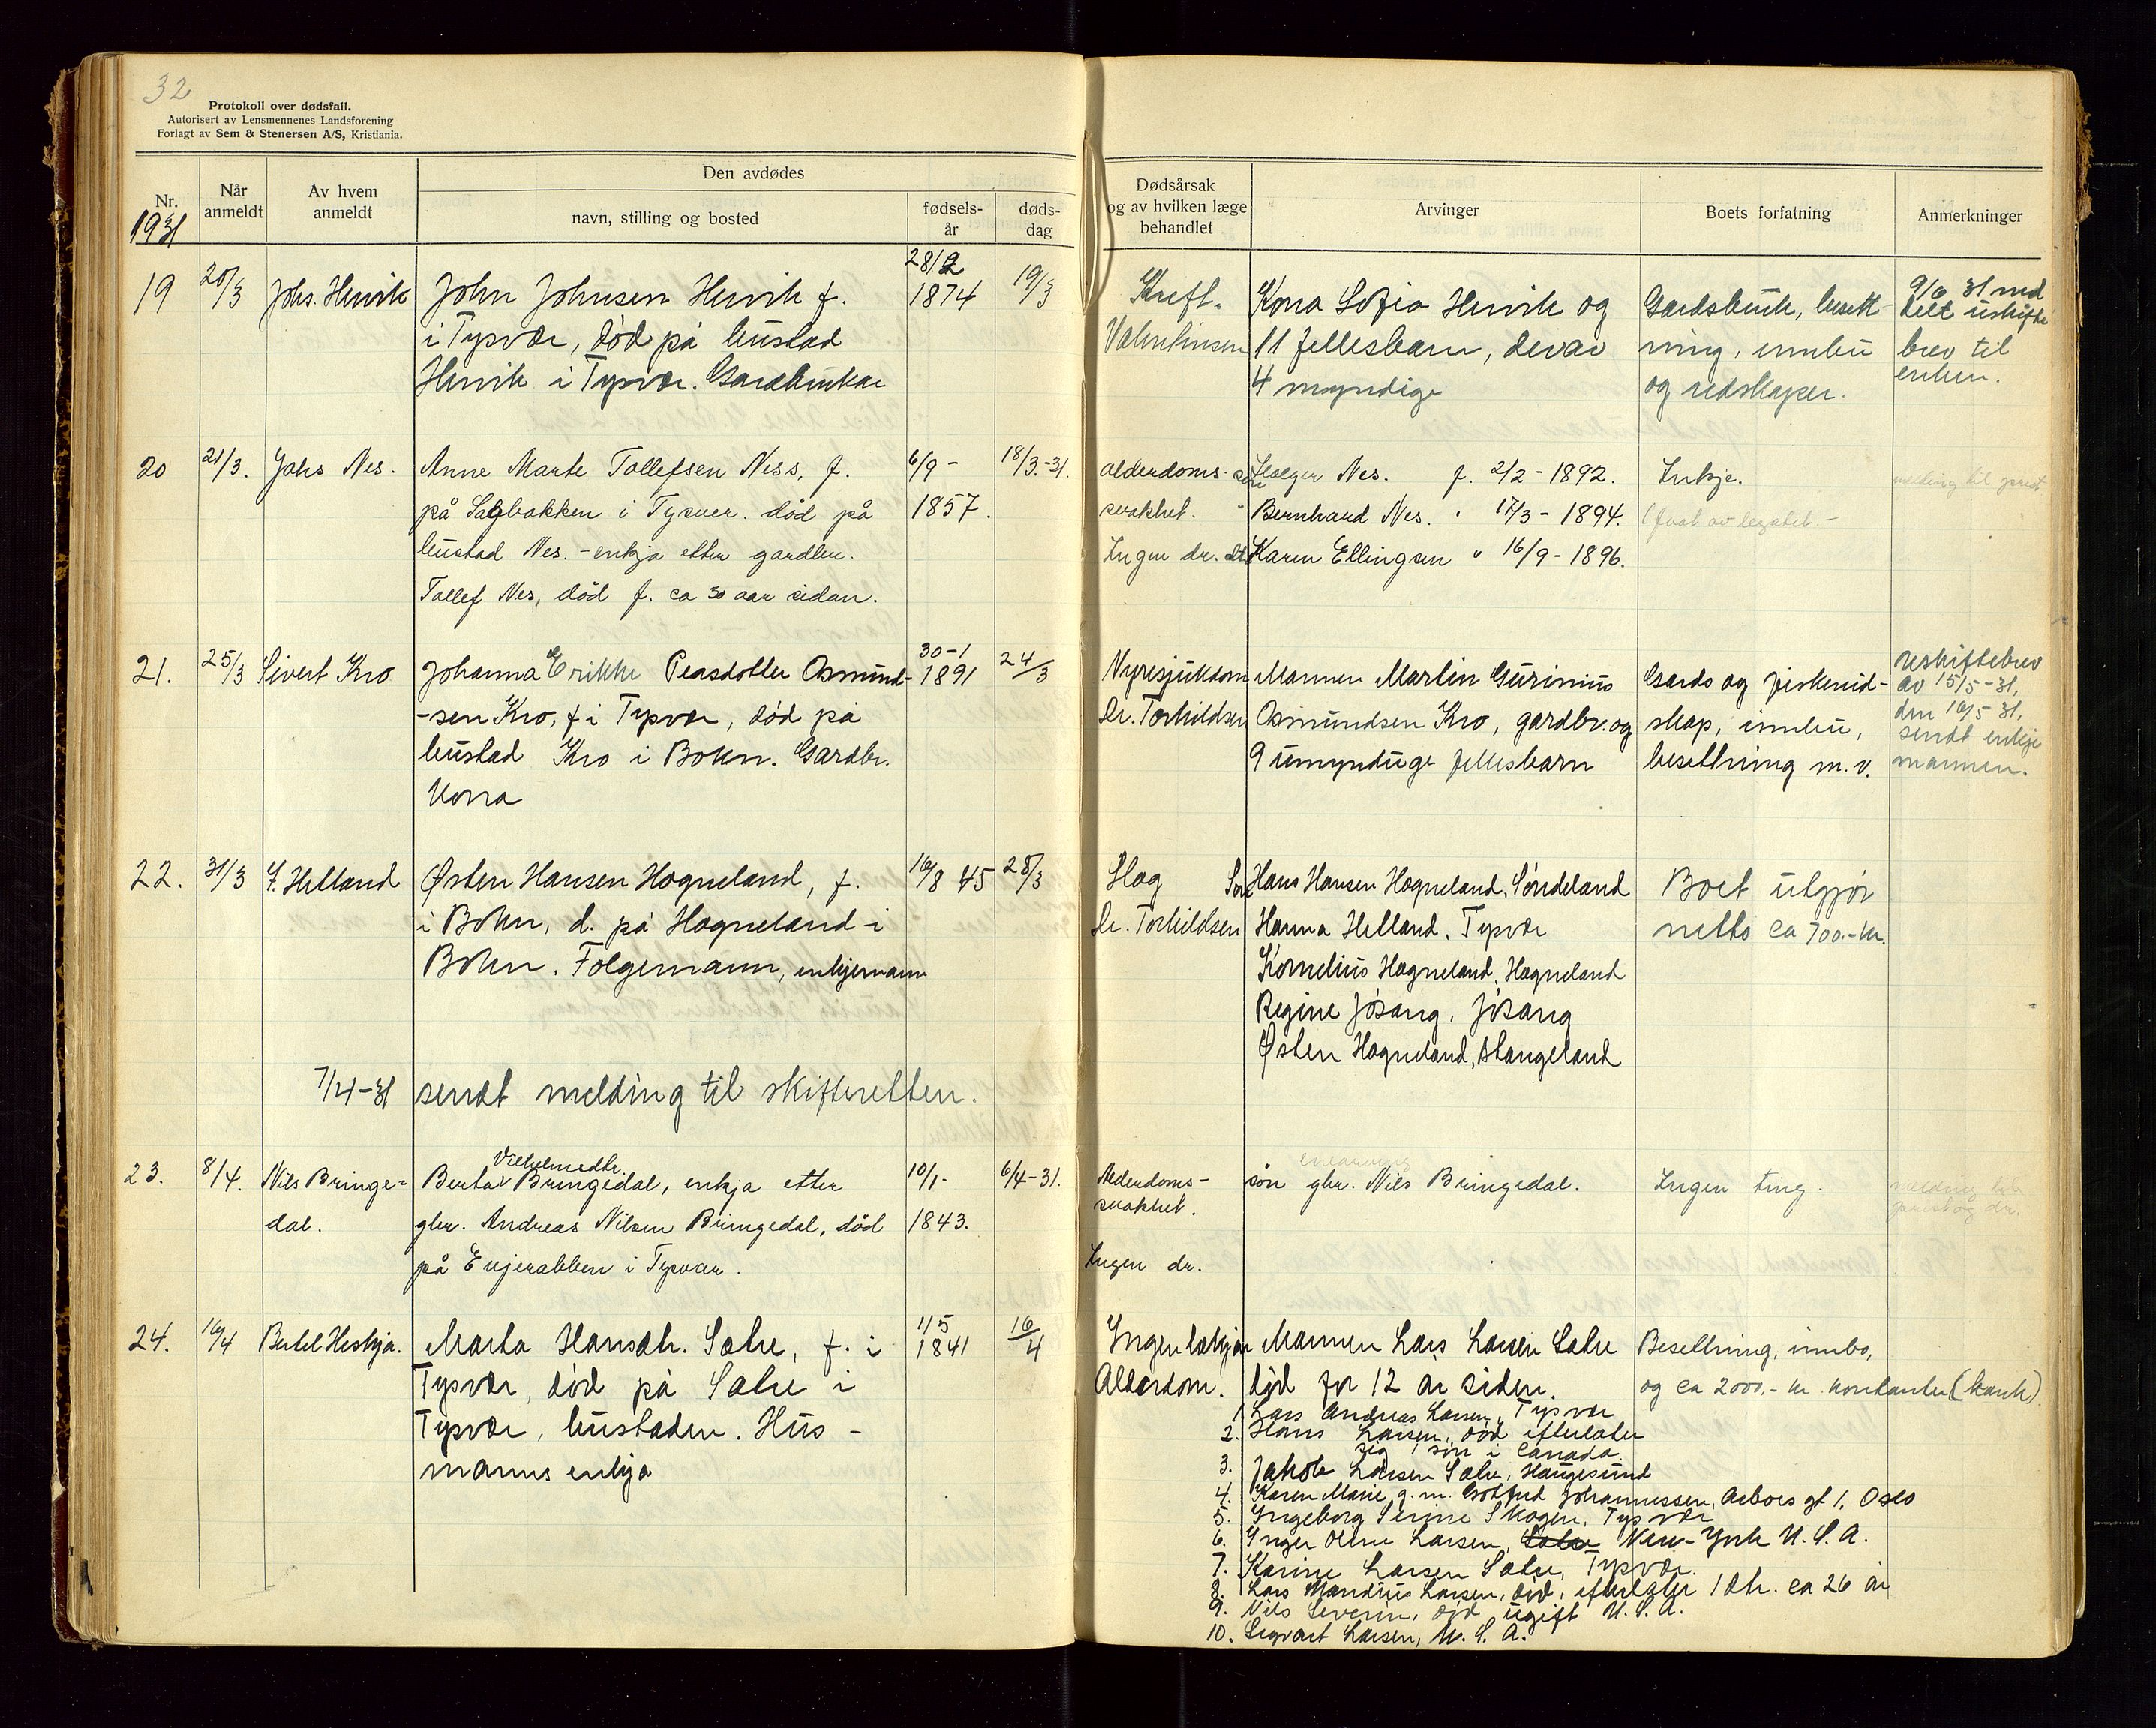 32
Protokoll over dødsfall.
Autorisert av Lensmennenes Landsforening
Forlagt av Sem & Stenersen A/S, Kristiania.
Nr.
1931
Når anmeldt
Av hvem anmeldt
Den avdødes
navn, stilling og bosted
fødsels-år
døds-dag
Dødsårsak og av hvilken læge behandlet
Arvinger
Boets forfatning
Anmerkninger
19
20/3
Johs. Hervik
John Johnsen Hervik f.
i Tysvær, død på bustad
Hervik i Tysvær. Gardbrukar
28/2
1874
19/3
Kreft.
Valentinsen
Kona Sofia Hervik og
11 fellesbarn, derav
4 myndige
Gardsbruk, besett-
ning, innbu
og redskaper.
9/6 31 med
delt uskifte
brev til
enken.
20
21/3.
Johs Nes.
Anne Marte Tollefsen Ness, f.
på Sagbakken i Tysver. død på
bustad Nes. - enkja etter gardbr.
Tollef Nes, død f. ca 30 aar sidan.
6/9 -
1857.
18/3.-31.
alderdoms-
svakhet.
Ingen dr.
Holger Nes. f. 2/2 - 1892.
Bernhard Nes. " 17/3 - 1894.
Karen Ellingsen " 16/9 - 1896.
Inkje.
melding til prest
21.
25/3
Sivert Kro
Johanna Erikke Pedersdotter Osmund-
-sen Kro, f i Tysvær, død på
bustad Kro i Bokn. Gardbr.
kona
30-1
1891
24/3
Nyresjukdom
Dr. Torkildsen
Mannen Martin Gurinius
Osmundsen Kro, gardbr. og
9 umyndige fellesbarn
Gards og fiskereid-
skap, innbu,
besettning m.v.
uskiftebrev
av 15/5-31,
den 16/5-31,
sendt enkje
mannen.
22.
31/3
J. Helland
Østen Hansen Hogneland, f.
i Bokn, d. på Hogneland i
Bokn. Folgemann, enkjemann
16/8 45
28/3
Slag
Dr. Torkildsen
Hans Hansen Hogneland, Sørdeland
Hanna Helland, Tysvær
Kornelius Hogneland, Hogneland
Regine Jøsang, Jøsang
Østen Hogneland, Stangeland
Boet utgjør
netto ca 700.- kr.
7/4-31 sendt melding til skifteretten.
23.
8/4.
Nils Bringe-
dal.
Vilhelmsdtr.
Berta Bringedal, enkja etter
gbr. Andreas Nilsen Bringedal, død
på Eujerabben i Tysvær.
10/1-
1843.
6/4-31.
Alderdoms-
svakhet.
Ingen dr.
enearving
søn gbr. Nils Bringedal.
Ingen ting.
melding til
prest og dr.
24.
16/4
Bertel Heskja.
Marta Hansdtr. Sætre, f. i
Tysvær, død på Sætre i
Tysvær, bustaden. Hus-
manns enkja
1/5
1841
16/4
Ingen lækjar
Alderdom.
Mannen Lars Larsen Sætre
død for 12 år siden.
1 Lars Andreas Larsen, Tysvær
2. Hans Larsen, død efterlater
sig 1 søn i Canada
3. Jakob Larsen Sætre, Haugesund
4. Karen Marie, g.m. Gotfred Johannessen, Arbos gt 1, Oslo
5. Ingeborg Serine Skogen, Tysvær
6. Inger Oline Larsen, New-York U.S.A.
7. Karine Larsen Sætre, Tysvær.
8. Lars Mandius Larsen, død, efterlater 1 dtr. ca 26 år
9. Nils Severin, død ugift U.S.A.
10. Sigvart Larsen, U.S.A.
Besettning, innbo,
og ca 2000.- kr. kontanter (bank)